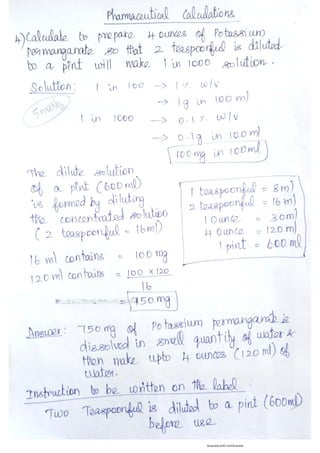 Pharmaceutical Calculations
4) Calculate to prepare 4 ounces of Potassium
permanganate so that 2 teaspoonful is diluted
to a pint will make 1 in 1000 solution.
Solution: 1 in 100 → 1% w/v
5 marks
→ 1g in 100 ml
1 in 1000 → 0.1% w/v
→ 0.1g in 100ml
100 mg in 100ml
The dilute solution
of a pint (600 ml)
is formed by diluting
the concentrated solution
(2 teaspoonful = 16ml)
1 teaspoonful = 8ml
2 teaspoonful = 16 ml
1 ounce = 30ml
4 ounce = 120 ml
1 pint = 600 ml
16 ml contains = 100 mg
120 ml contains = 100 x 120
16
= 750 mg
Answer: 750 mg of Potassium permanganate is
dissolved in small quantity of water &
then make upto 4 ounces (120 ml) of
water.
Instruction to be written on the label
Two Teaspoonful is diluted to a pint (600ml)
before use
Scanned with CamScanner